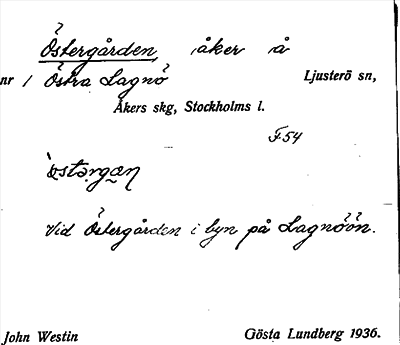 Östergården, åker å
nr 1 Östra Lagnö Ljusterö sn,
Åkers skg, Stockholms l.
F54
Vid Östergården i byn på Lagnöön.
John Westin Gösta Lundberg 1936.